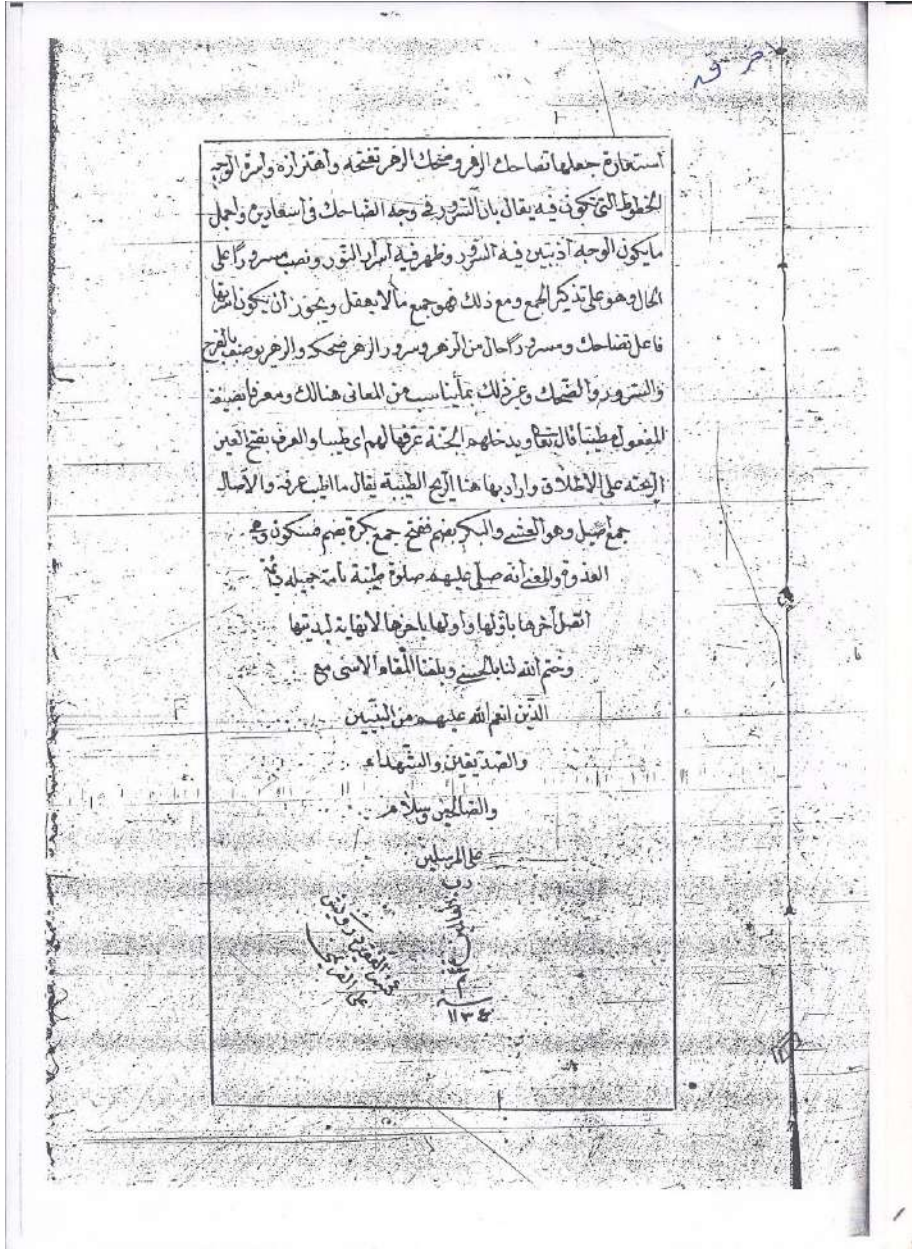 استعارة جعلها تضاحك الزهر وضحك الزهر تفتحه واهتزازه واسرة الوجه
الخطوط التي تكون فيه يقال بان السرور في وجه الضاحك في اسعاريره واجمل
مايكون الوجه اذا تبين فيه السرور وظهر فيه اسرار النور ونصب مسرورًا على
الحال وهو على تذكير الجمع ومع ذلك فهو جمع ما لا يعقل ويجوز ان يكون
فاعل تضاحك ومسرورًا حال من الزهر وسرور الزهر ضحكه والزهر يوصف بالفرح
والسرور والضحك وغير ذلك بما يناسب من المعاني هنالك ومعرفا بصيغة
المفعول مطيبا قال تعا ويدخلهم الجنة عرفها لهم اى طيبها والعرف بفتح العين
الريحة على الاطلاق واراد بها هنا الريح الطيبة يقال ما اطيب عرفه والاصال
جمع اصيل وهو العشي والبكر بضم ففتح جمع بكرة بضم فسكون وهي
الغدوة والمعنى انه صلى عليهم صلوة طيبة تامة جميله دائمة
اتصل آخرها باولها واولها باخرها لا نهاية لابديتها
وختم الله لنا بالحسنى وبلغنا المقام الاسنى مع
الذين انعم الله عليهم من النبيين
والصديقين والشهداء
والصالحين وسلام
على المرسلين
رب
العالمين
سنة
١١٣٤
الفقير درويش
على